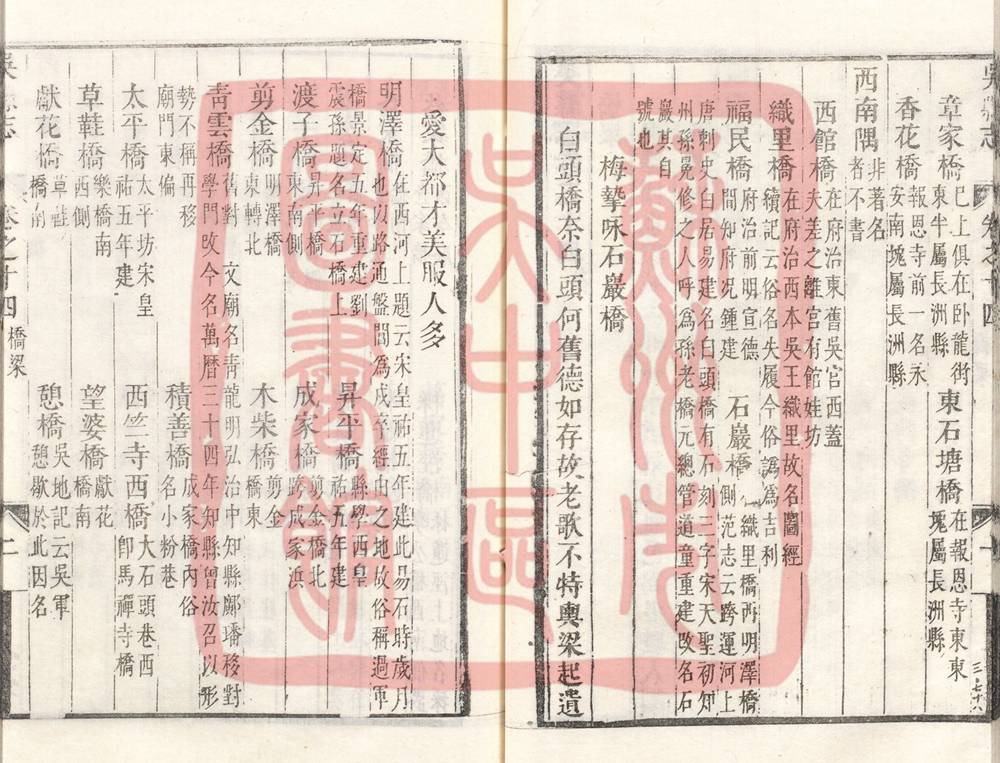 章家橋 已上俱在卧龍街
東半屬長洲縣 東石塘橋 在報恩寺東東
塊屬長洲縣
香花橋 報恩寺前一名永
安南塊屬長洲縣
西南隅 非著名
者不書
西館橋 在府治東舊吳宮西蓋
夫差之離宮有館娃坊
織里橋 在府治西本吳王織里故名圖經
續記云俗名失履今俗譌為吉利
福民橋 府治前明宣德
間知府况鍾建 石巖橋 織里橋西明澤橋
側范志云跨運河上
唐刺史白居易建名白頭橋有石刻三字宋天聖初知
州孫冕修之人呼為孫老橋元總管道童重建改名石
巖其自
號也
梅摯咏石巖橋
白頭橋奈白頭何舊德如存故老歌不特輿梁起遺
愛大都才美服人多
明澤橋 在西河上題云宋皇祐五年建此易石時歲月
也以路通盤門為戍卒經由之地故俗稱過軍
橋景定五年重建劉
震孫題名立石橋上 昇平橋 縣學西皇
祐五年建
渡子橋 昇平橋
東南側 成家橋 剪金橋北
跨成家浜
剪金橋 明澤橋
東轉北 木柴橋 剪金
橋東
青雲橋 舊對 文廟名青龍明弘治中知縣鄺璠移對
學門改今名萬曆三十四年知縣曾汝召以形
勢不稱再移
廟門東偏 積善橋 成家橋內俗
名小粉巷
太平橋 太平坊宋皇
祐五年建 西竺寺西橋 大石頭巷西
卽馬禪寺橋
草鞋橋 樂橋南
西側 望婆橋 獻花
橋南
獻花橋 草鞋
橋南 憩橋 吳地記云吳軍
憩歇於此因名
卷之十四 橋梁
二